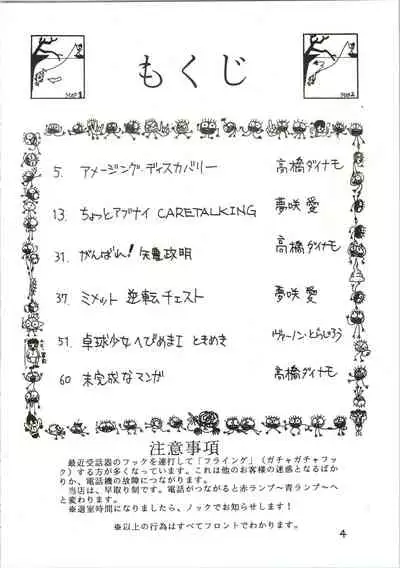 もくじ
STEP 1
STEP 2
5. アメージング・ディスカバリー 高橋ダイナモ
13. ちょっとアブナイ CARETALKING 夢咲 愛
31. がんばれ! 矢亀政明 高橋ダイナモ
37. ミメット 逆転チェスト 夢咲 愛
51. 卓球少女へびめまI ときめき ヴァーノン・どらじろう
60 未完成なマンガ 高橋ダイナモ
注意事項
最近受話器のフックを連打して「フライング」(ガチャガチャフッ
ク)する方が多くなっています。これは他のお客様の迷惑となるばか
りか、電話機の故障につながります。
当店は、早取り制です。電話がつながると赤ランプ~青ランプ~へ
と変わります。
※退室時間になりましたら、ノックでお知らせします!
※以上の行為はすべてフロントでわかります。
4